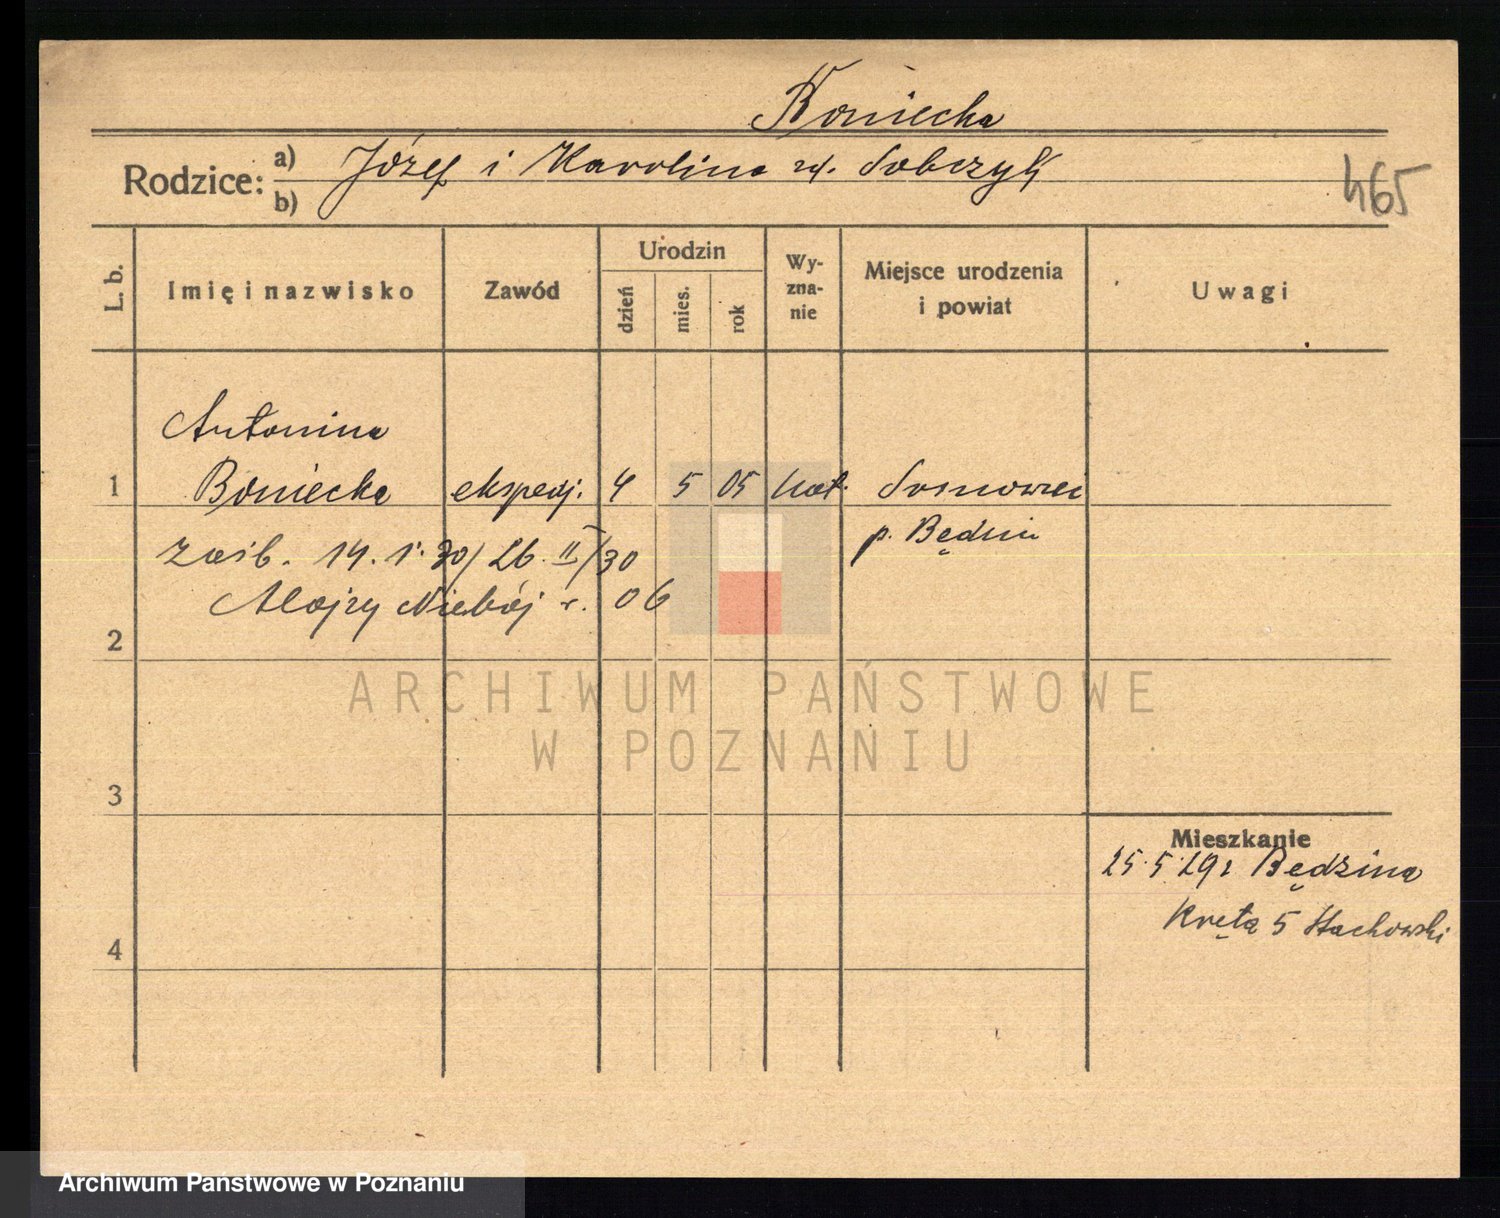 Boniecka
Rodzice: a) Józef i Karolina zd. Sobczyk
b)
465
L. b.
Imię i nazwisko
Zawód
Urodzin
dzień
mies.
rok
Wy-
zna-
nie
Miejsce urodzenia
i powiat
Uwagi
Antonina
1 Boniecka ekspedj. 4 5 05 kat. Sosnowiec
p. Będzin
zaśb. 14. 1. 30/26. II/30
Alojzy Niebój r. 06
2
ARCHIWUM PAŃSTWOWE
W POZNANIU
3
Mieszkanie
25.5.29 z Będzina
Kręta 5 Stachowski
4
Archiwum Państwowe w Poznaniu